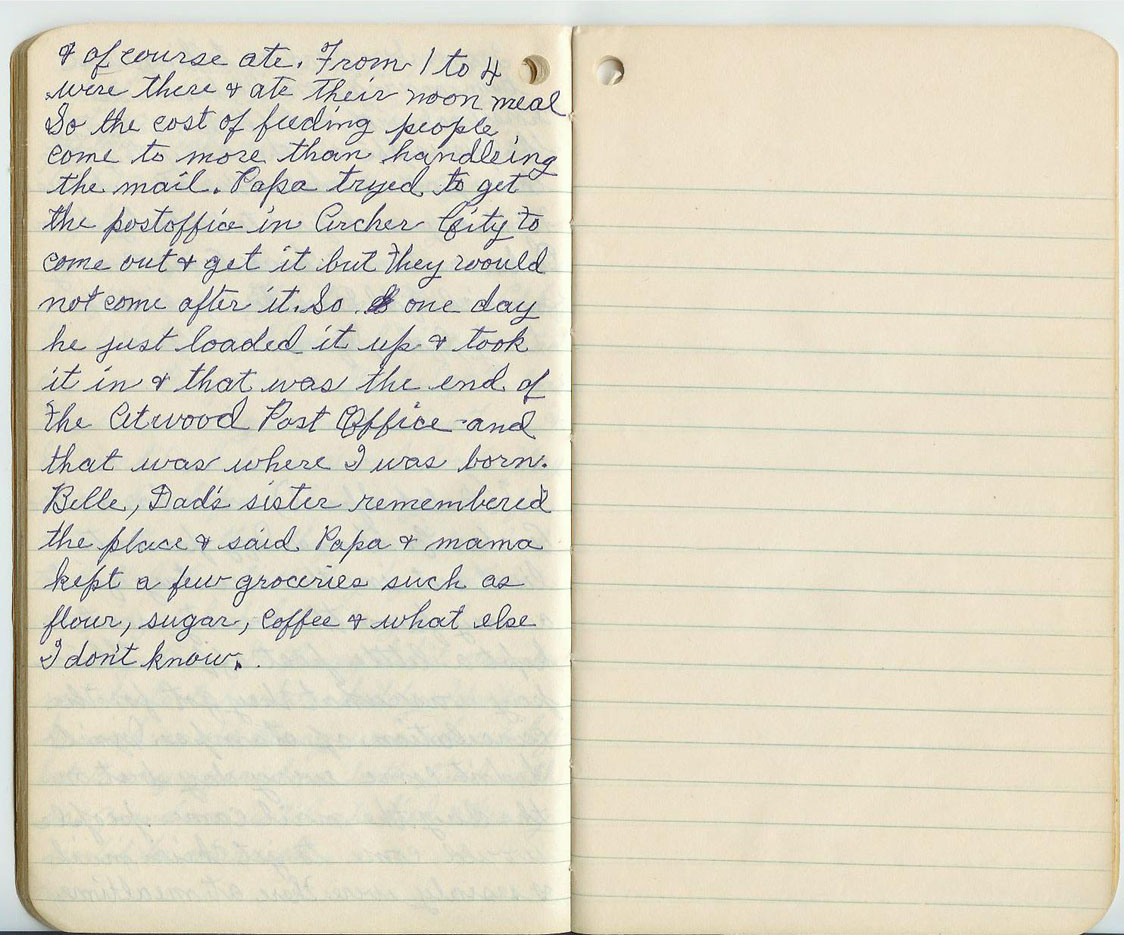 & of course ate. From 1 to 4
were there & ate their noon meal
So the cost of feeding people
come to more than handleing
the mail. Papa tryed to get
the postoffice in Archer City to
come out & get it but they would
not come after it. So one day
he just loaded it up & took
it in & that was the end of
the Atwood Post Office and
that was where I was born.
Belle, Dad's sister remembered
the place & said Papa & mama
kept a few groceries such as
flour, sugar, coffee & what else
I don't know.